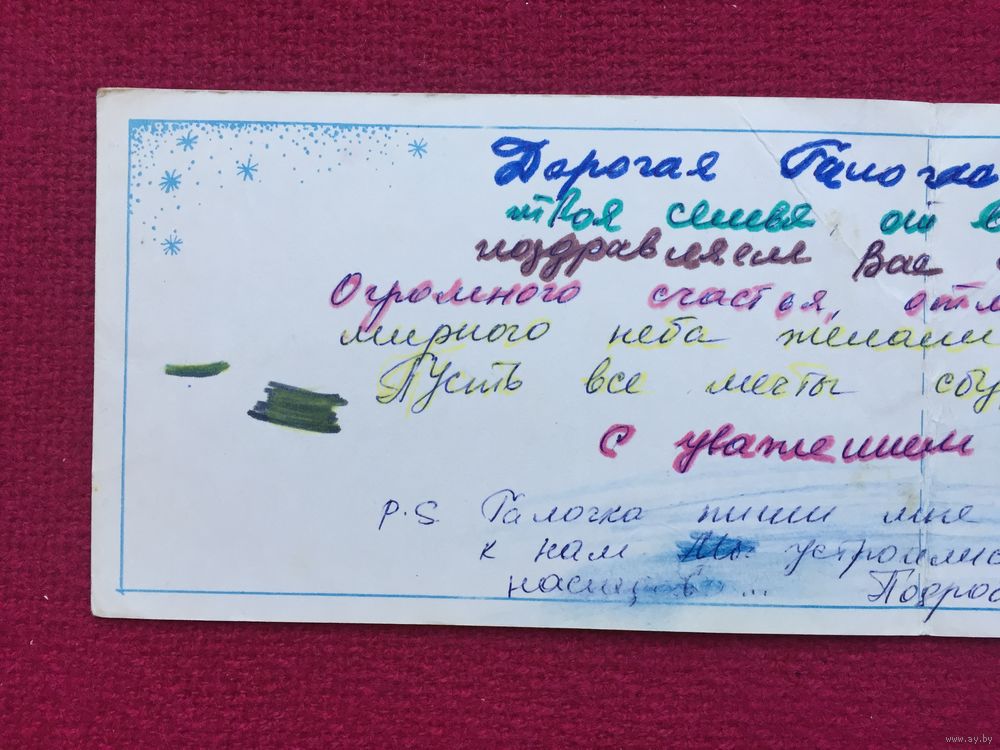 Дорогая Галочка
твоя семья, от в
поздравляем Вас
Огромного счастья, отл
мирного неба желаем
Пусть все мечты сбу
С уважением
P.S. Галочка пиши мне
к нам Мы устроились
Подрос
www.ay.by